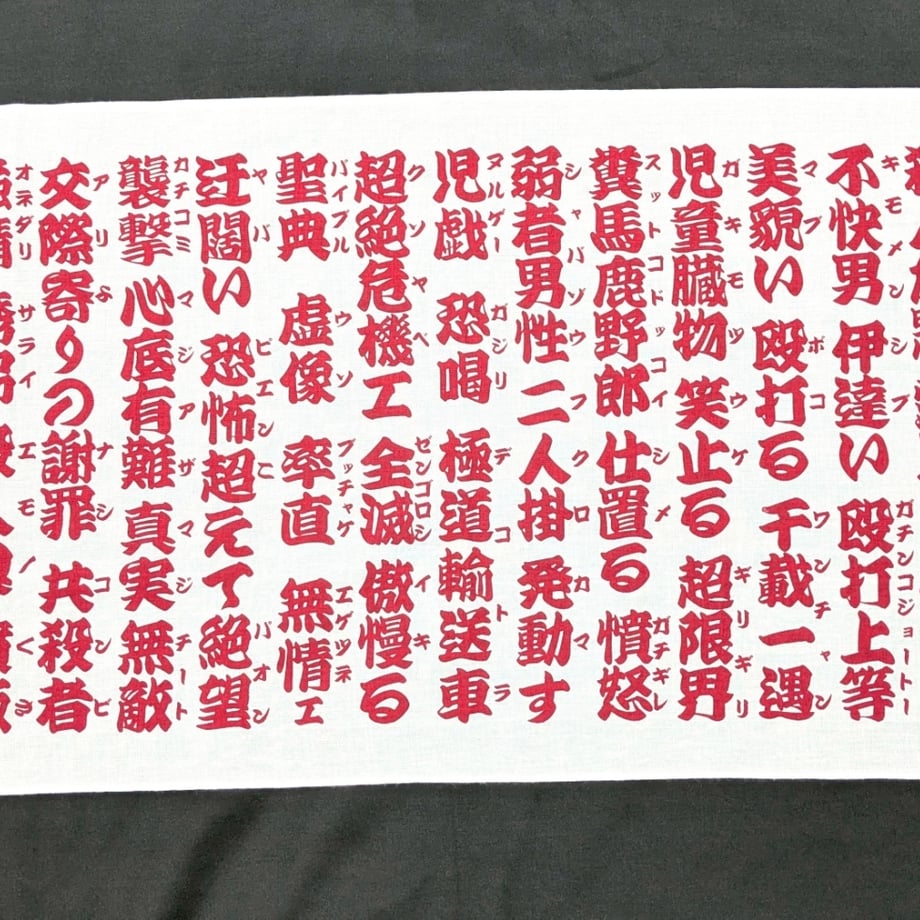 不快男 伊達い 殴打上等
キモメン シブ ガチンコジョートー
美貌い 殴打る 千載一遇
マブ ボコ ワンチャン
児童臓物 笑止る 超限界
ガキモツ ウケ ギリギリ
糞馬鹿野郎 仕置る 憤怒
スットコドッコイ シメ ガチギレ
弱者男性二人掛 発動す
シャバゾウフクロ カマ
児戯 恐喝 極道輸送車
ヌルゲー ガジリ デコトラ
超絶危機エ 全滅 傲慢る
クソヤベ ゼンゴロシ イキ
聖典 虚像 率直 無情ェ
バイブル ウソ ブッチャケ エゲツネ
迂闊い 恐怖超えて絶望
ヤバ ピエン こ パオン
襲撃 心底有難 真実無敵
カチコミ マジアザ マジチート
交際寄りの謝罪 共殺者
アリ よ ナシ コンビ
オネダリ サライ エモノ